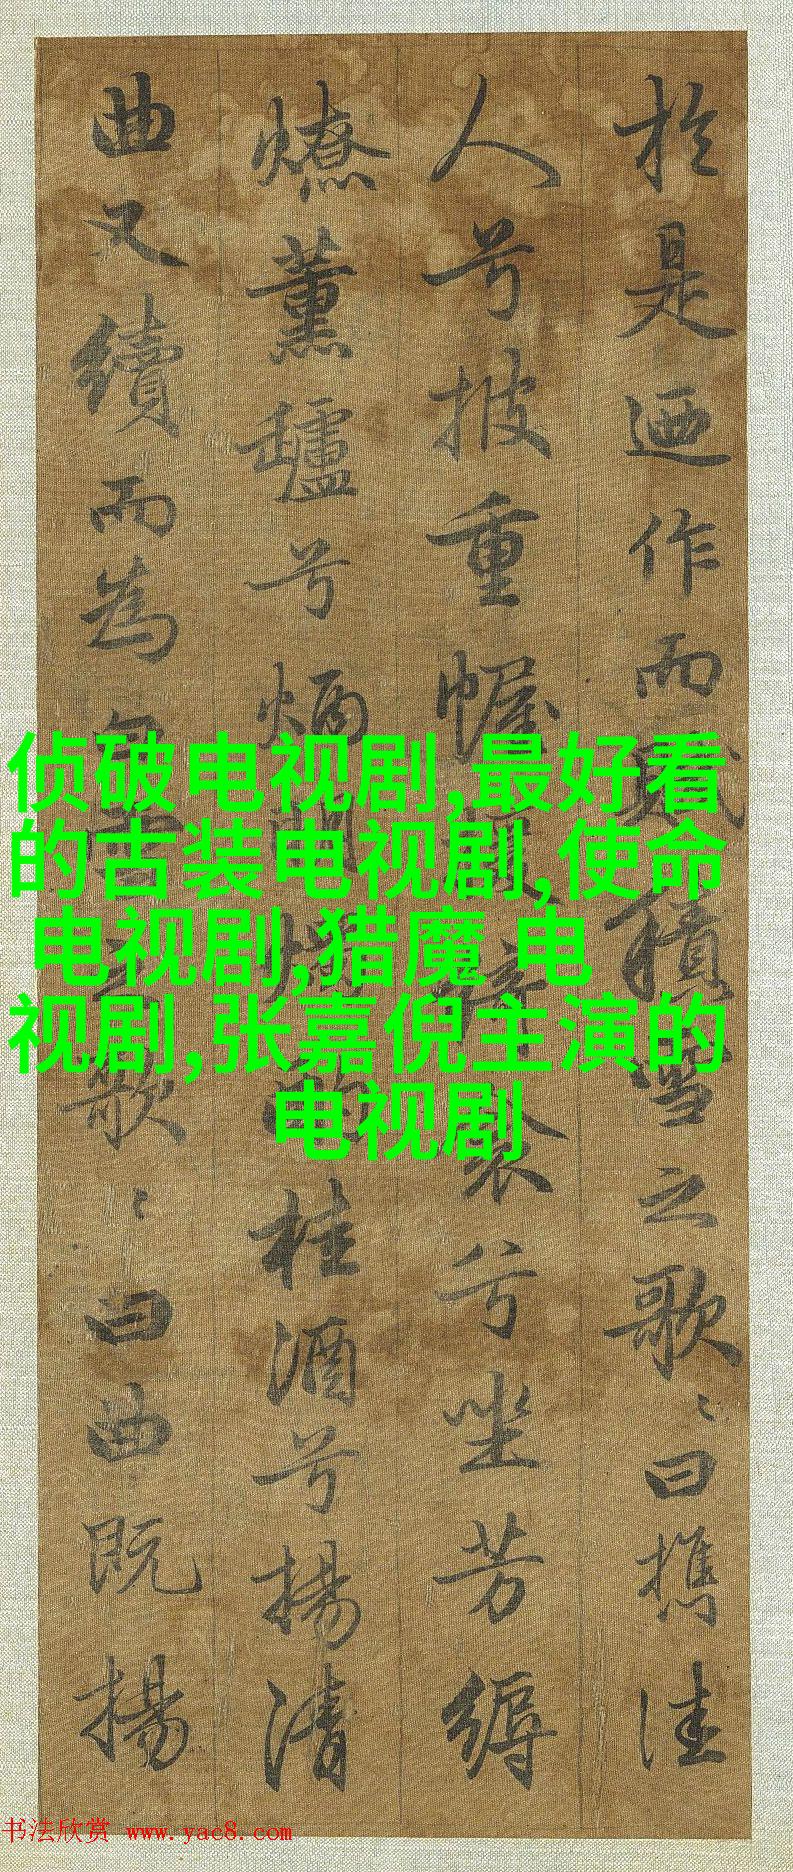 於是迺作而賦積雪之歌〻曰攜佳
人兮披重幄衾兮坐芳縟
燎薰罏兮炳明燭酌桂酒兮揚清
曲又續而為白雪之歌〻曰曲既揚
侦破电视剧,最好看
的古装电视剧,使命
电视剧,猎魔 电
视剧,张嘉倪主演的
电视剧
书法欣赏 www.yac8.com